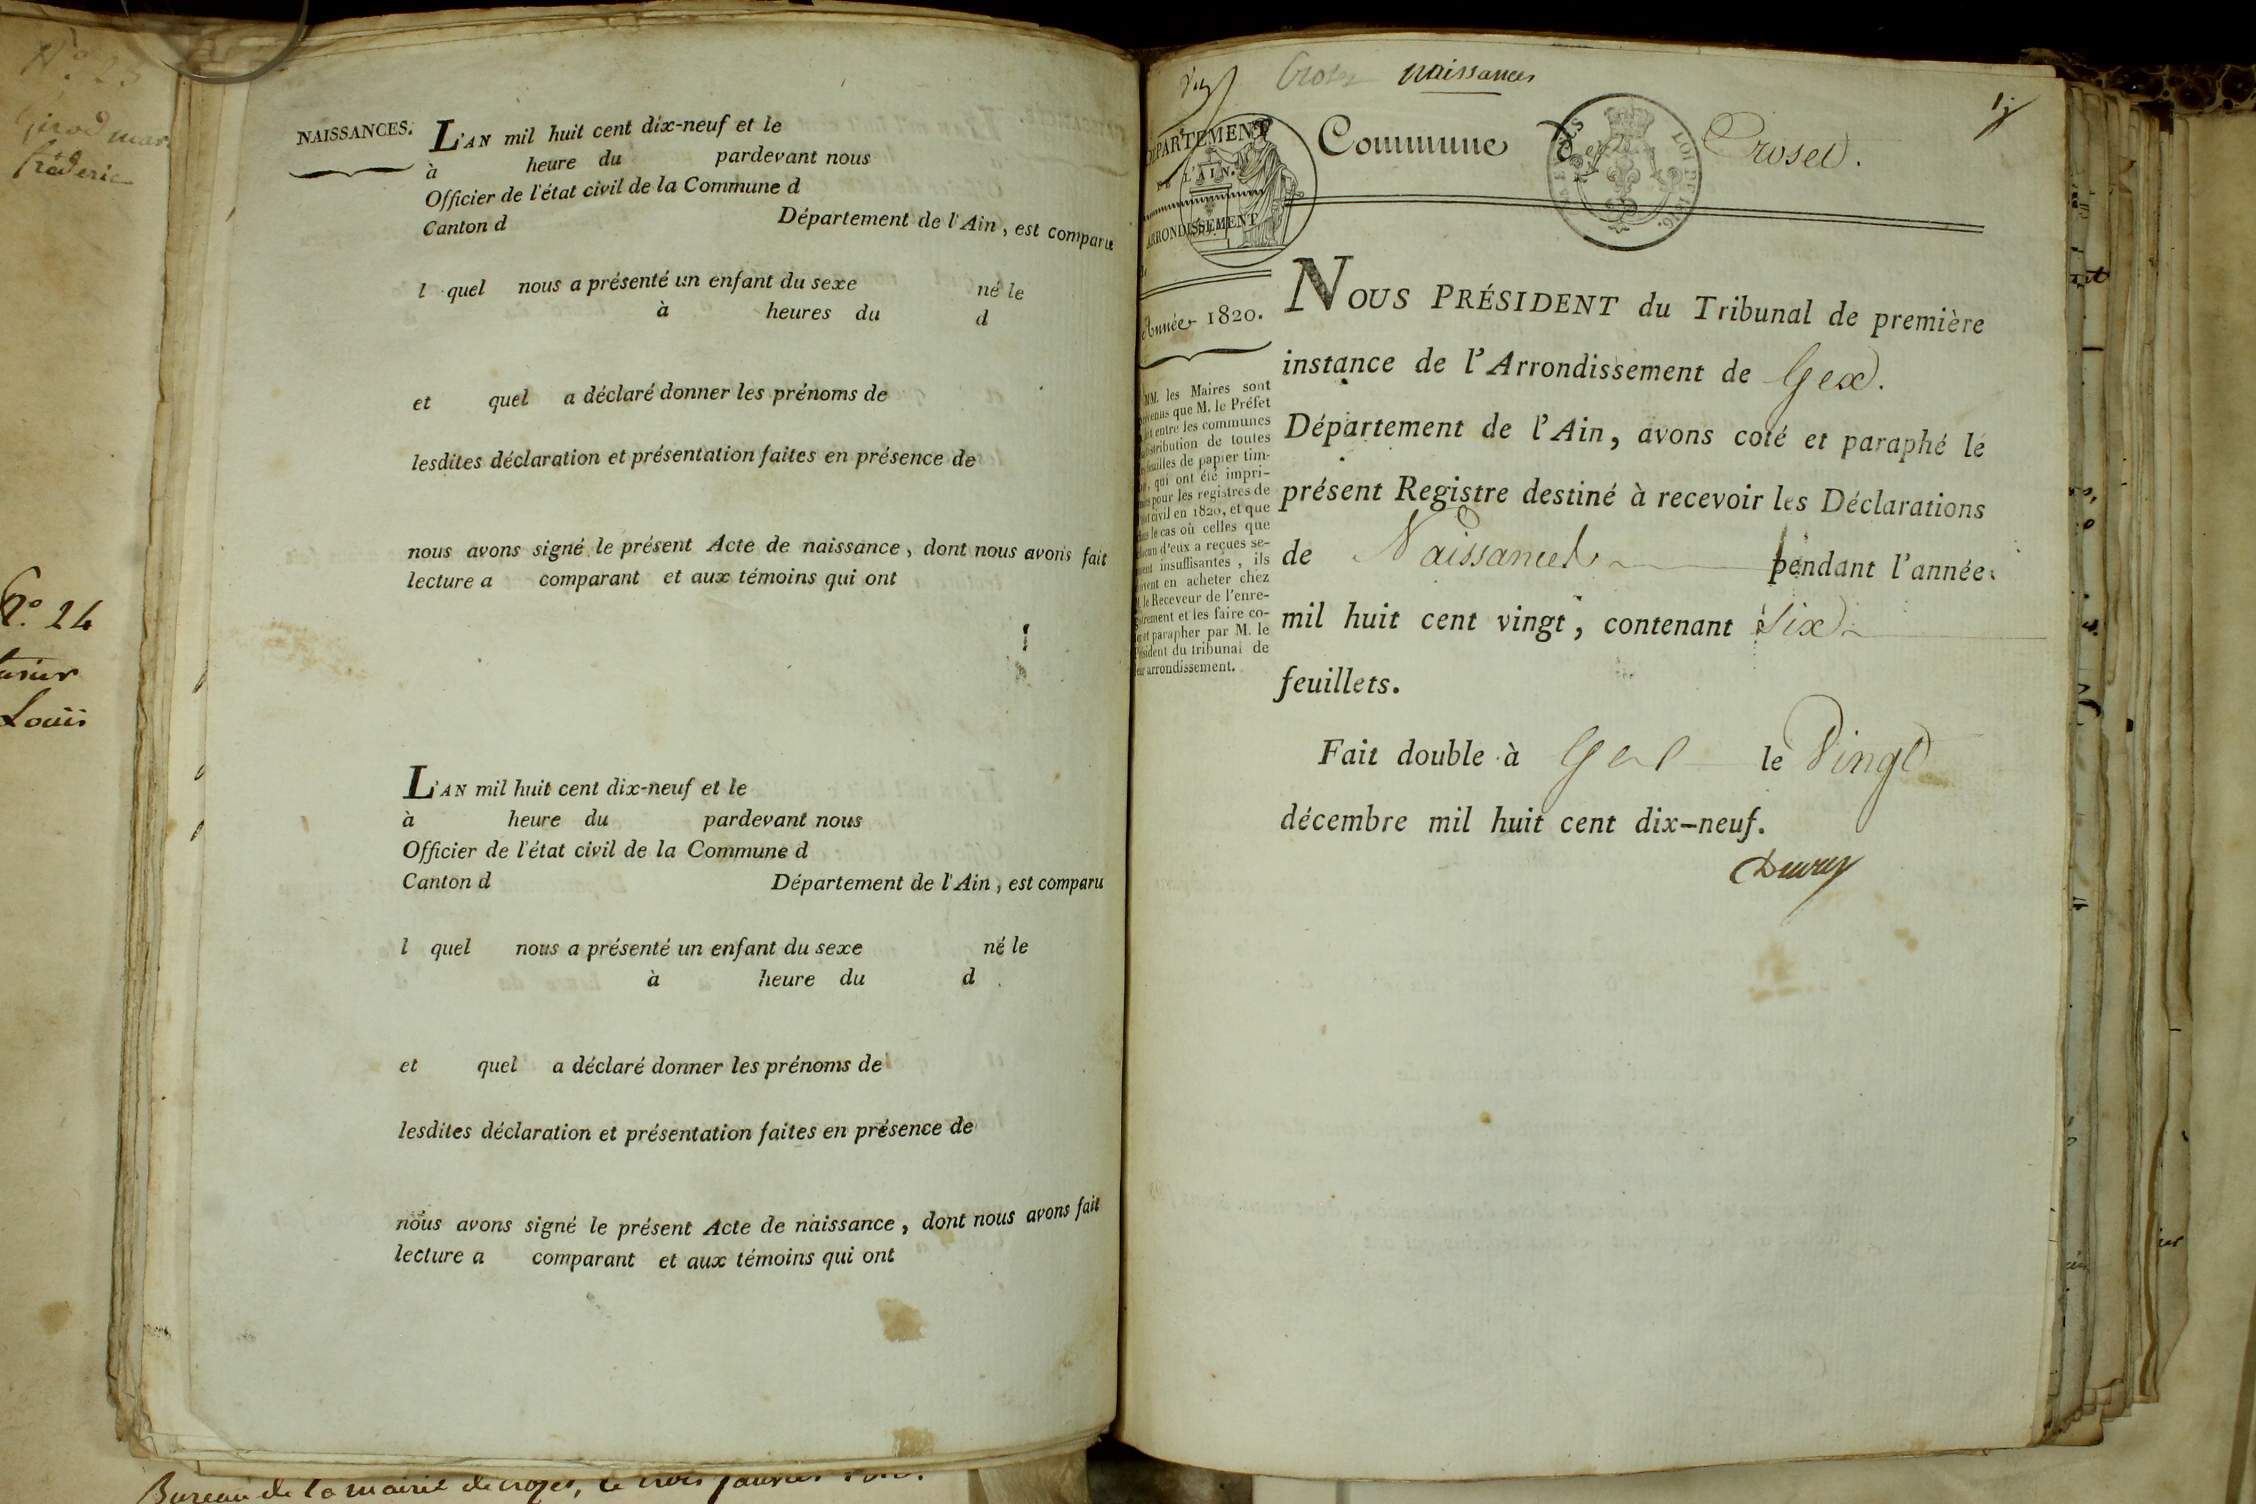 Girod mar
fréderic
N.° 24
Louis
NAISSANCES.
L'AN mil huit cent dix-neuf et le
à heure du pardevant nous
Officier de l'état civil de la Commune d
Canton d Département de l'Ain, est comparu
l quel nous a présenté un enfant du sexe né le
à heures du d
et quel a déclaré donner les prénoms de
lesdites déclaration et présentation faites en présence de
nous avons signé le présent Acte de naissance, dont nous avons fait
lecture a comparant et aux témoins qui ont
L'AN mil huit cent dix-neuf et le
à heure du pardevant nous
Officier de l'état civil de la Commune d
Canton d Département de l'Ain, est comparu
l quel nous a présenté un enfant du sexe né le
à heure du d
et quel a déclaré donner les prénoms de
lesdites déclaration et présentation faites en présence de
nous avons signé le présent Acte de naissance, dont nous avons fait
lecture a comparant et aux témoins qui ont
Bureau de la mairie de crozet, le trois janvier
naissances
DÉPARTEMENT
DE L'AIN.
ARRONDISSEMENT
Commune de Croset.
LOI DE 1816.
Année 1820.
MM. les Maires sont
prévenus que M. le Préfet
fait entre les communes
distribution de toutes
les feuilles de papier tim-
bré, qui ont été impri-
mées pour les registres de
l'état civil en 1820, et que
dans le cas où celles que
chacun d'eux a reçues se-
raient insuffisantes, ils
doivent en acheter chez
M. le Receveur de l'enre-
gistrement et les faire co-
ter et parapher par M. le
Président du tribunal de
leur arrondissement.
NOUS PRÉSIDENT du Tribunal de première
instance de l'Arrondissement de Gex.
Département de l'Ain, avons coté et paraphé le
présent Registre destiné à recevoir les Déclarations
de Naissances pendant l'année
mil huit cent vingt, contenant Six
feuillets.
Fait double à Gex le Vingt
décembre mil huit cent dix-neuf.